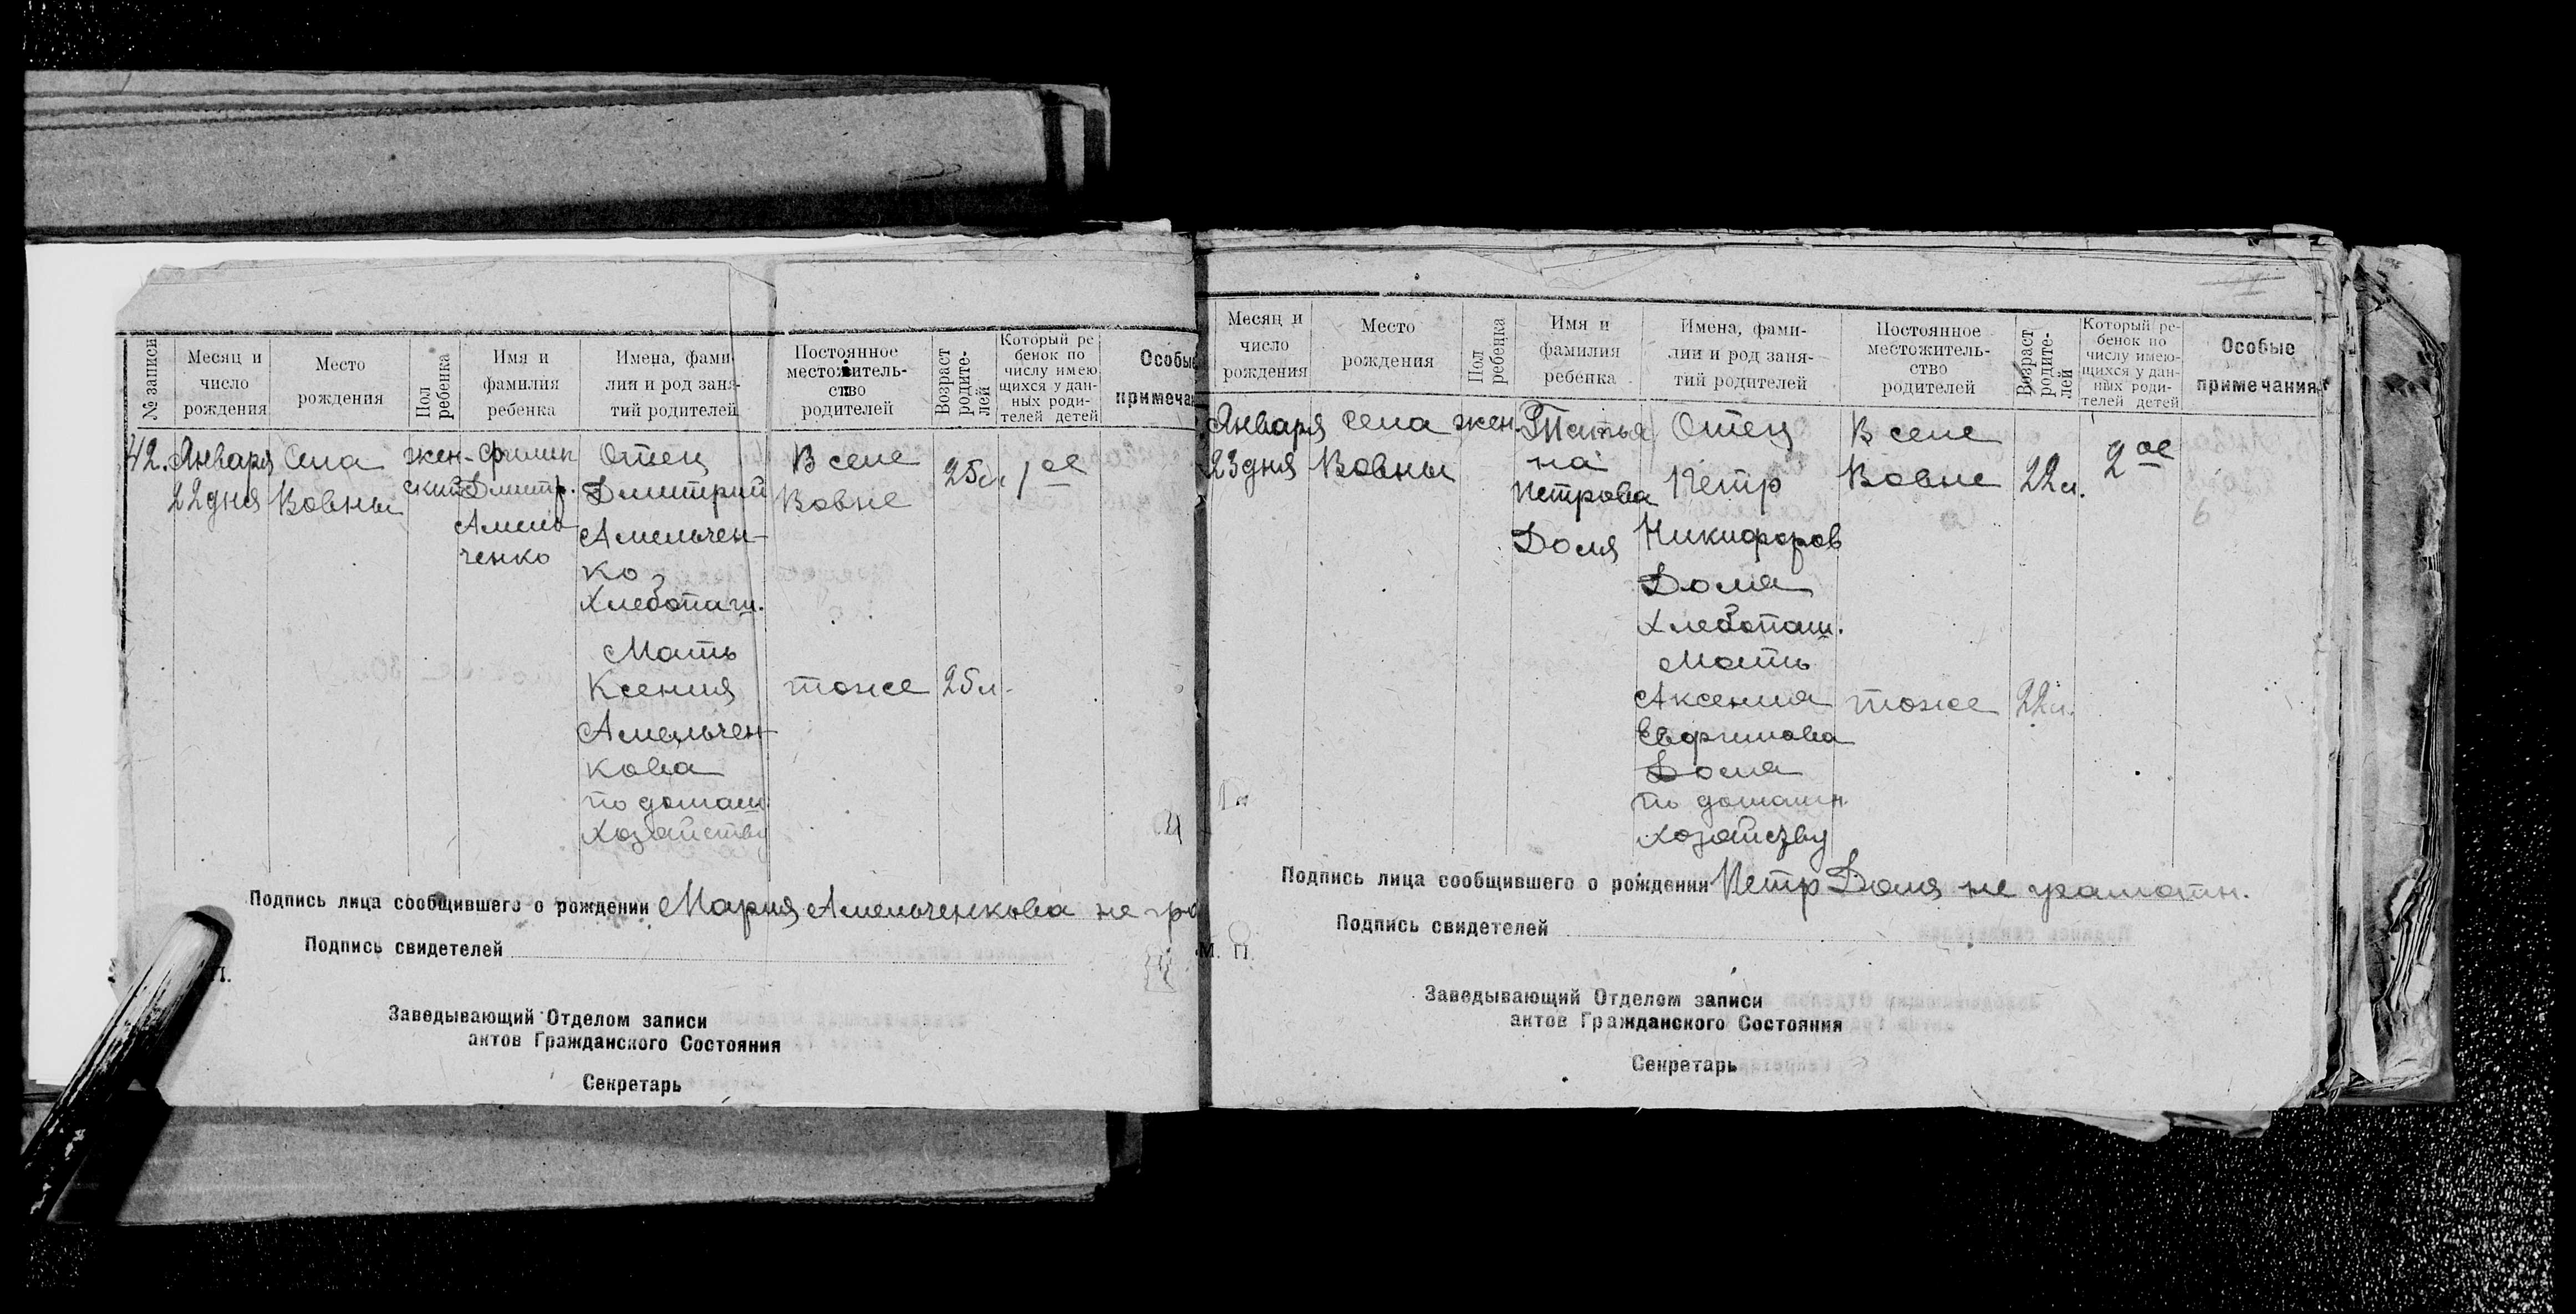 № записи
Месяц и
число
рождения
Место
рождения
Пол
ребенка
Имя и
фамилия
ребенка
Имена, фами-
лии и род заня-
тий родителей
Постоянное
местожитель-
ство
родителей
Возраст
родите-
лей
Который ре
бенок по
числу имею
щихся у дан-
ных роди-
телей детей
Особые
примеча
42.
Января
22 дня
Села
Вовны
жен-
ский
Филип
Дмитр.
Амель
ченко
Отец
Дмитрий
Амельчен-
ко
Хлебопаш.
Мать
Ксения
Амельчен-
кова
по домаш.
хозяйству
В селе
Вовне
тоже
25 л.
25 л.
1 ое
Подпись лица сообщившего о рождении Мария Амельченкова не гра
Подпись свидетелей
П.
Заведывающий Отделом записи
актов Гражданского Состояния
Секретарь
Месяц и
число
рождения
Место
рождения
Пол
ребенка
Имя и
фамилия
ребенка
Имена, фами-
лии и род заня-
тий родителей
Постоянное
местожитель-
ство
родителей
Возраст
родите-
лей
Который ре-
бенок по
числу имею-
щихся у дан-
ных роди-
телей детей
Особые
примечания
Января
23 дня
села
Вовны
жен.
Татья
на
Петрова
Доля
Отец
Петр
Никифоров
Доля
Хлебопаш.
Мать
Аксения
Евфимова
Доля
по домашн.
хозяйству
В селе
Вовне
тоже
22 л.
22 л.
2 ое
Подпись лица сообщившего о рождении Петр Доля не грамотн.
Подпись свидетелей
М. П.
Заведывающий Отделом записи
актов Гражданского Состояния
Секретарь